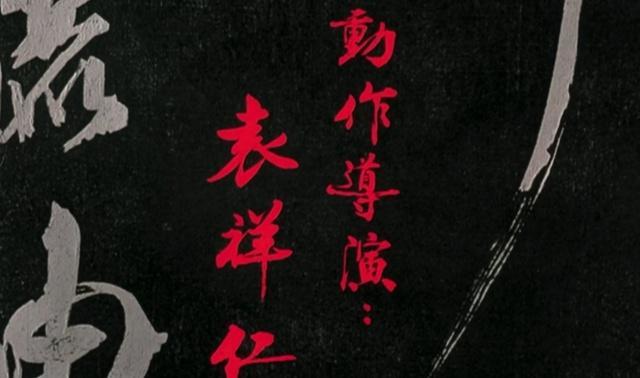 動作導演：
袁祥仁